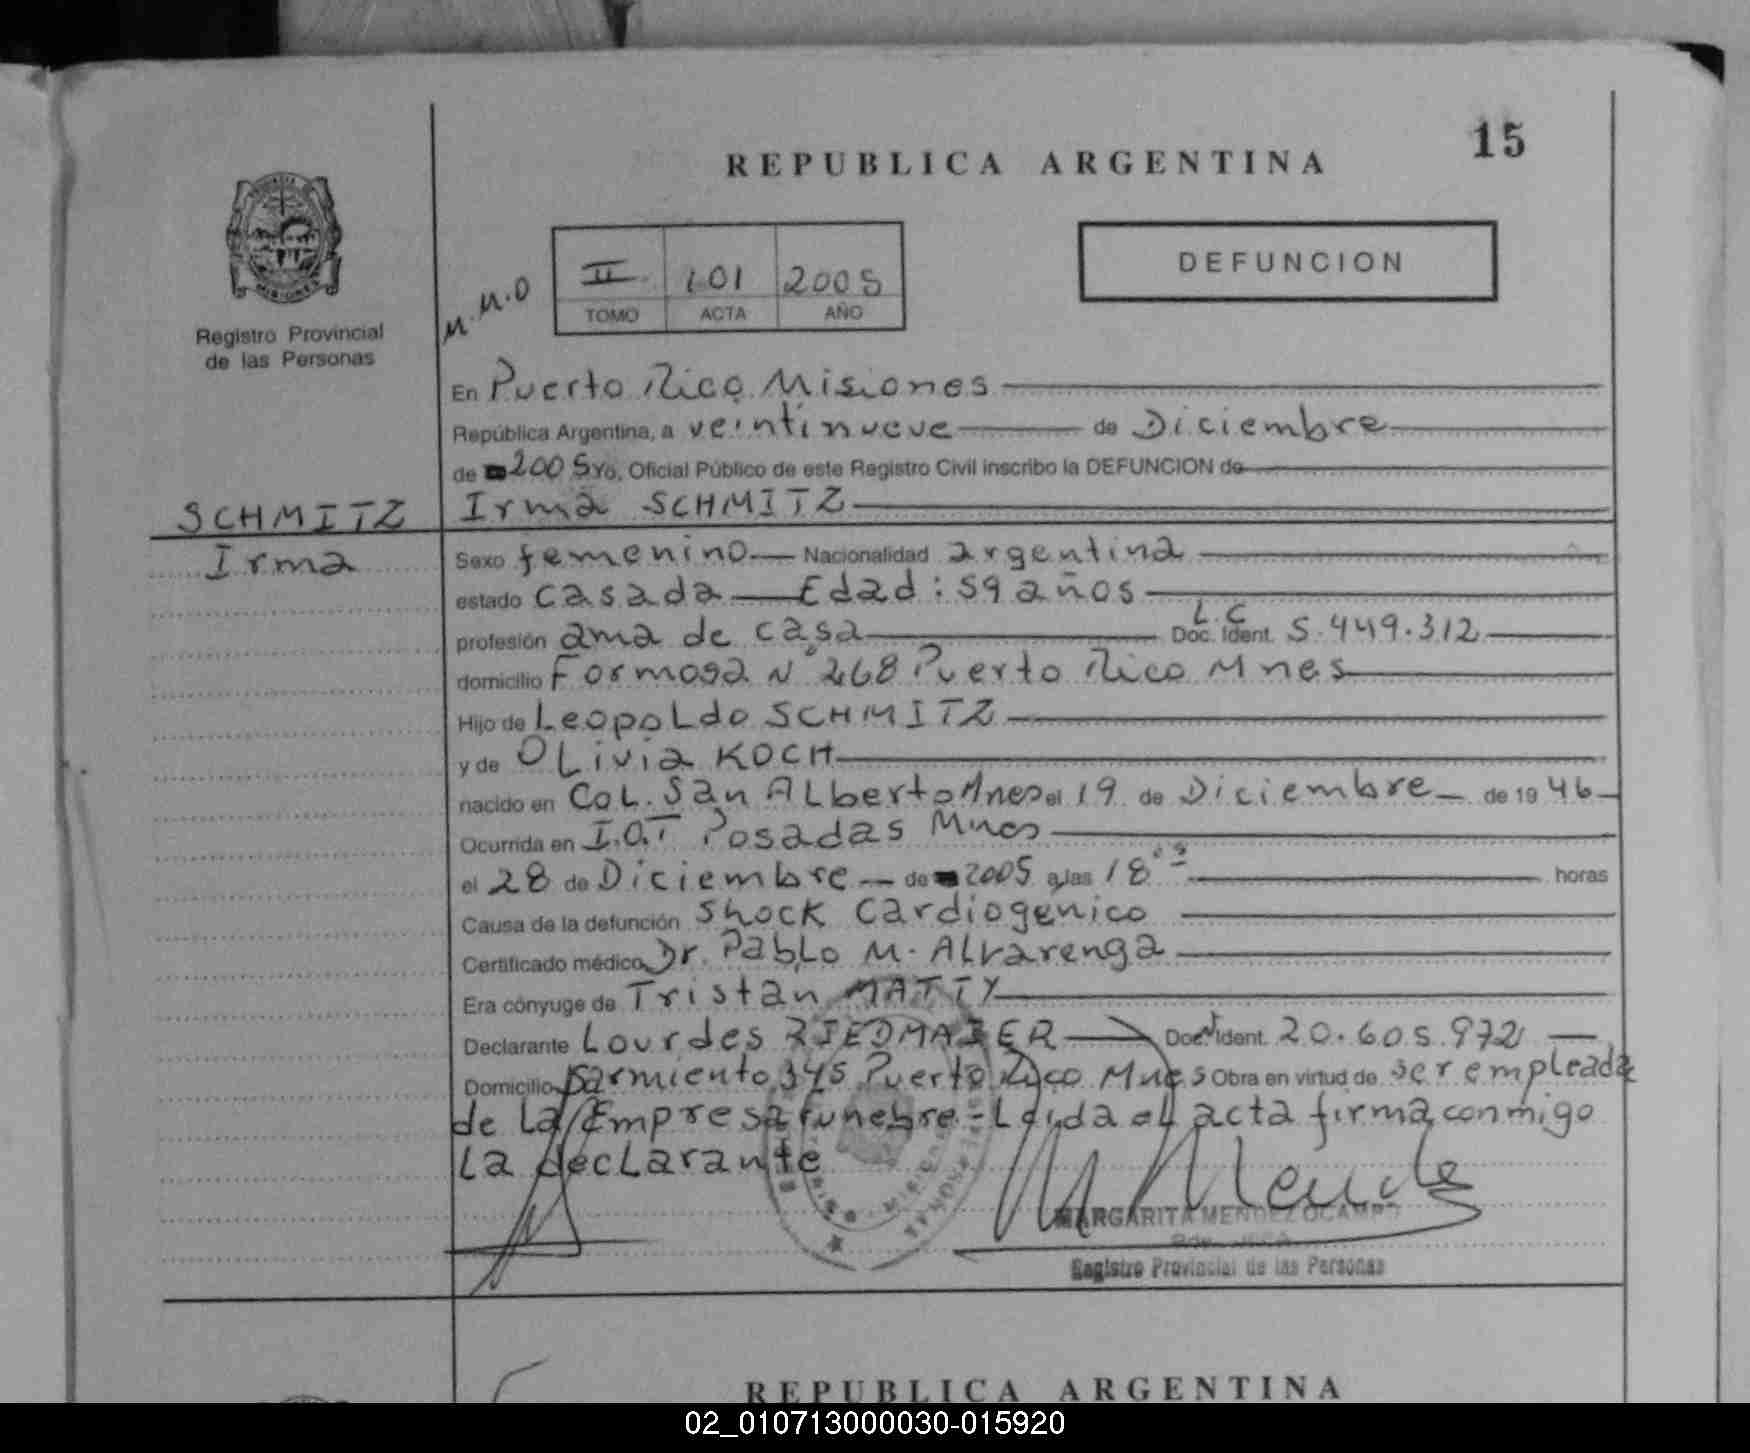 15
REPUBLICA ARGENTINA
DEFUNCION
II 101 2005
TOMO ACTA AÑO
M.M.O
MISIONES
Registro Provincial
de las Personas
En Puerto Rico Misiones
República Argentina, a veintinueve de Diciembre
de 2005 Yo, Oficial Público de este Registro Civil inscribo la DEFUNCION de
SCHMITZ
Irma
Irma SCHMITZ
Sexo femenino Nacionalidad argentina
estado casada Edad: 59 años
profesión ama de casa Doc. Ident. L.C 5.449.312
domicilio Formosa Nº 268 Puerto Rico Mnes
Hijo de Leopoldo SCHMITZ
y de Olivia KOCH
nacido en Col. San Alberto Mnes el 19 de Diciembre de 1946
Ocurrida en I.O.T Posadas Mnes
el 28 de Diciembre de 2005 a las 18 horas
Causa de la defunción Shock Cardiogenico
Certificado médico Dr. Pablo M. Alvarenga
Era cónyuge de Tristan MATTY
Declarante Lourdes RIEDMAIER Doc. Ident. 20.605.972
Domicilio Sarmiento 345 Puerto Rico Mnes Obra en virtud de ser empleada
de la Empresa funebre.- Leida el acta firma conmigo
la declarante
MARGARITA MENDEZ OCAMPO
Registro Provincial de las Personas
REPUBLICA ARGENTINA
02_010713000030-015920